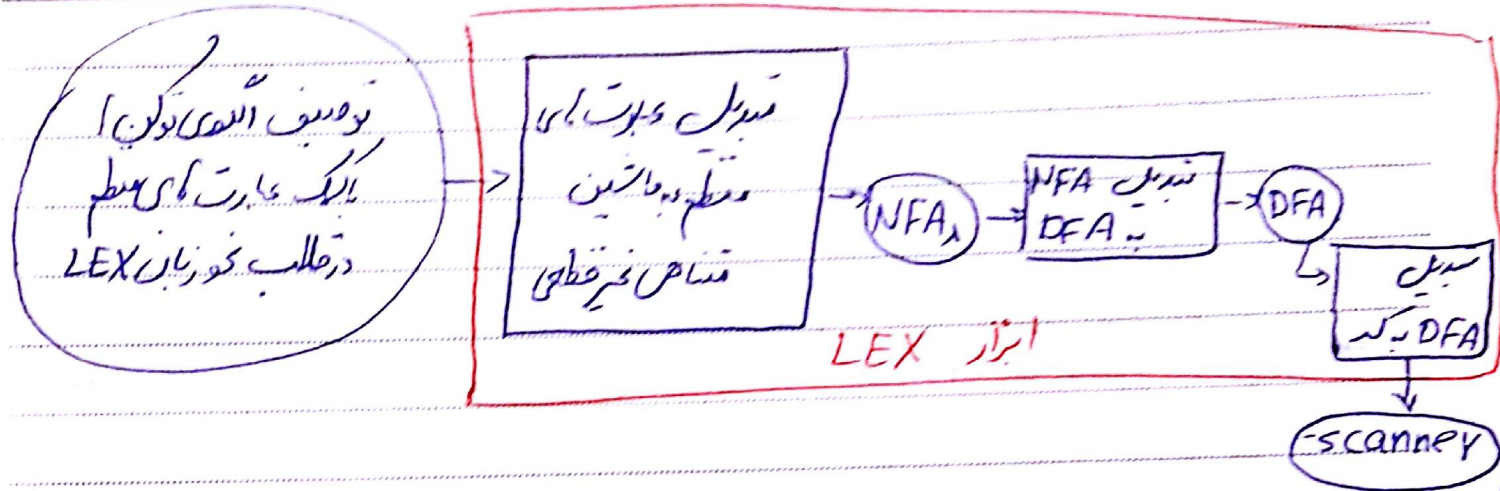 توصیف الگوی توکن ها
با کمک عبارت های منظم
در قالب نحو زبان LEX
تبدیل عبارت های
منظم به ماشین
متناهی غیرقطعی
NFA
تبدیل NFA
به DFA
DFA
تبدیل
DFA به کد
ابزار LEX
scanner